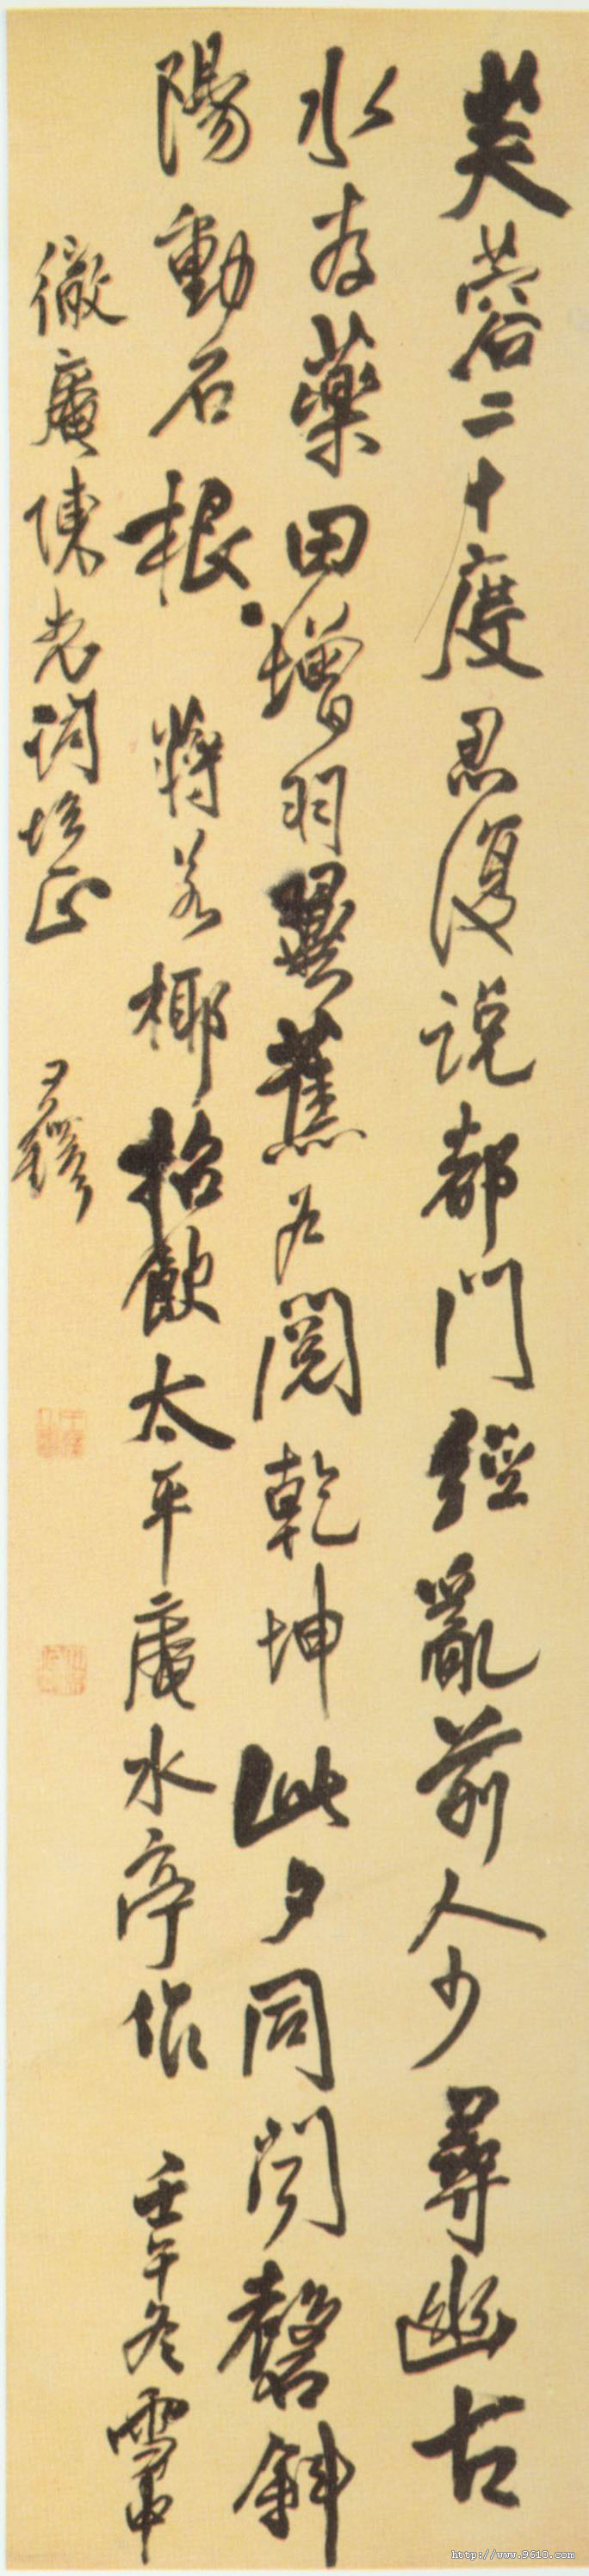 芙蓉二十度忍復說都門經亂前人少尋幽古
水存藥田增羽翼蕉石閱乾坤此夕同聞磬斜
陽動石根 蔣若椰招飲太平庵水亭作 壬午冬雪中
徹庵陳老詞壇正 王鐸
http://www.9610.com